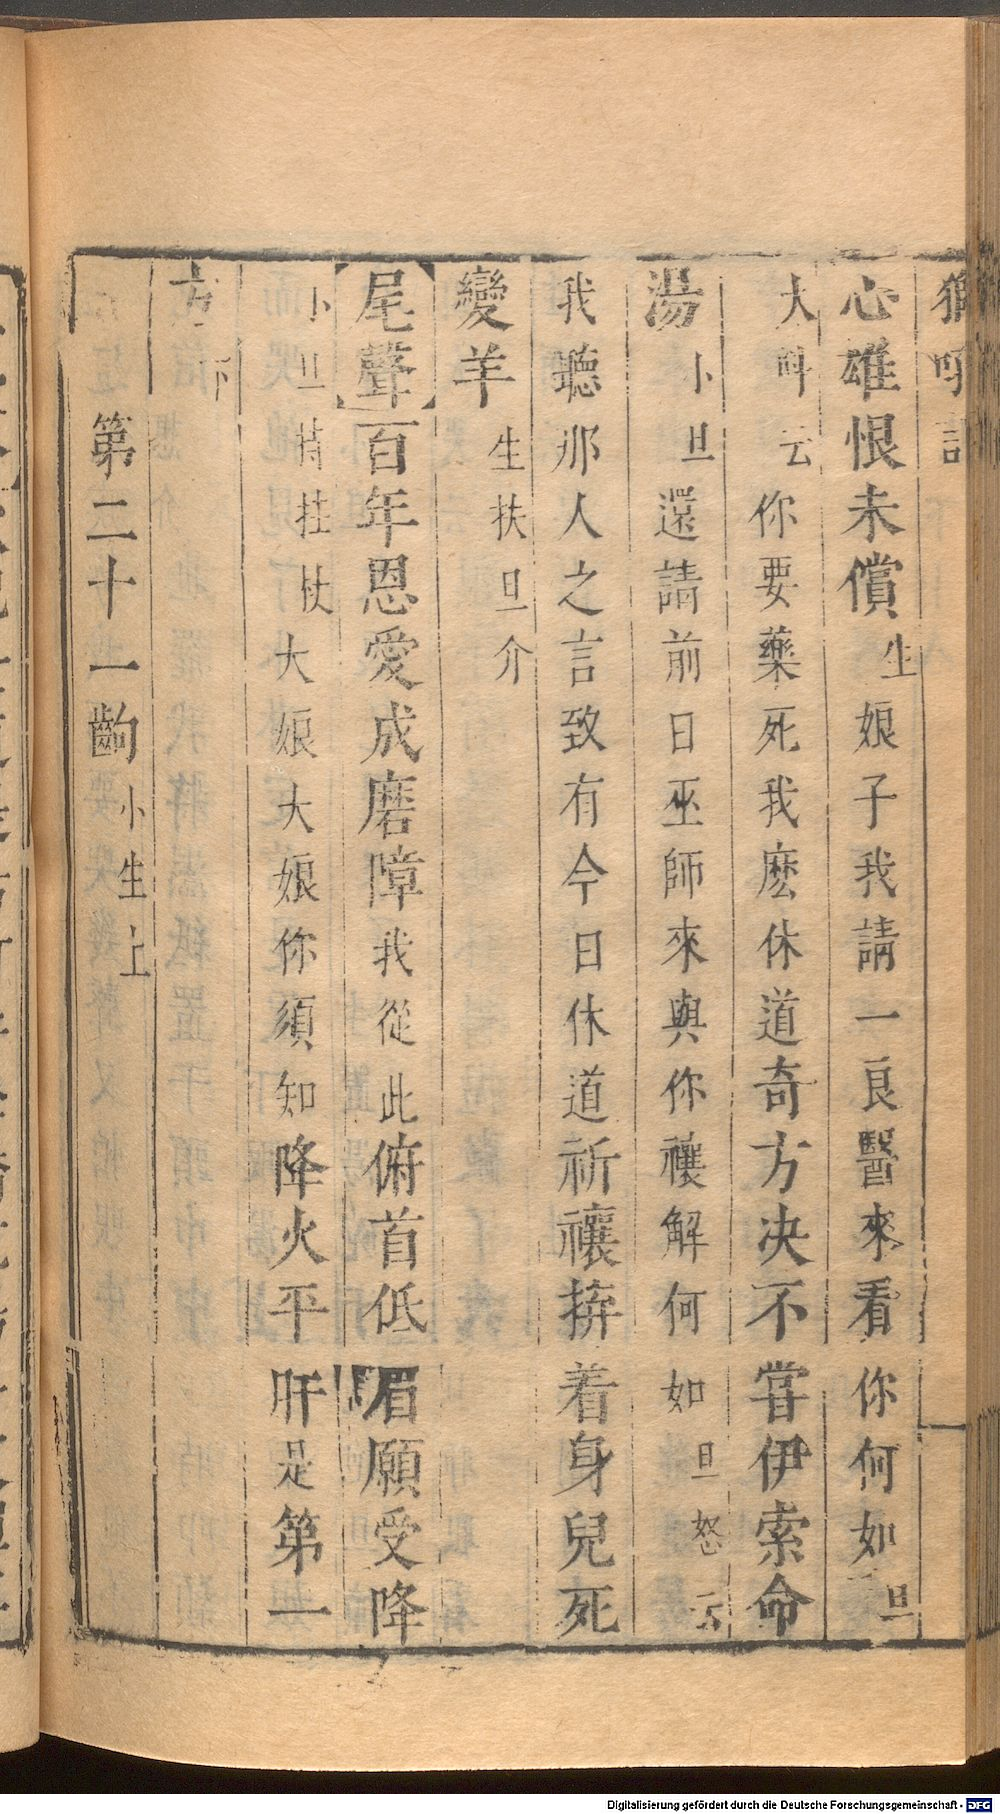 獅吼記
心雄恨未償生娘子我請一良醫來看你何如旦
大呌云你要藥死我麽休道奇方决不甞伊索命
湯小旦還請前日巫師來與你禳解何如旦怒云
我聽那人之言致有今日休道祈禳拚着身兒死
變羊生扶旦介
【尾聲】百年恩愛成磨障我從此俯首低眉願受降
小旦持拄杖大娘大娘你須知降火平肝是第一
方下
第二十一齣小生上
Digitalisierung gefördert durch die Deutsche Forschungsgemeinschaft - DFG